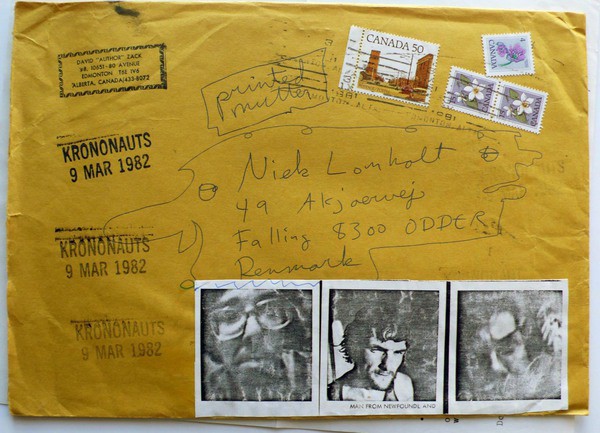 DAVID "AUTHOR" ZACK
#8. 10651-80 AVENUE
EDMONTON T5E 1V6
ALBERTA, CANADA/435-8072
KRONONAUTS
9 MAR 1982
KRONONAUTS
9 MAR 1982
KRONONAUTS
9 MAR 1982
printed
mutter
CANADA 50
4
CANADA
Niels Lomholt
49 Akjaervej
Falling 8300 ODDER
Denmark
MAN FROM NEWFOUNDLAND